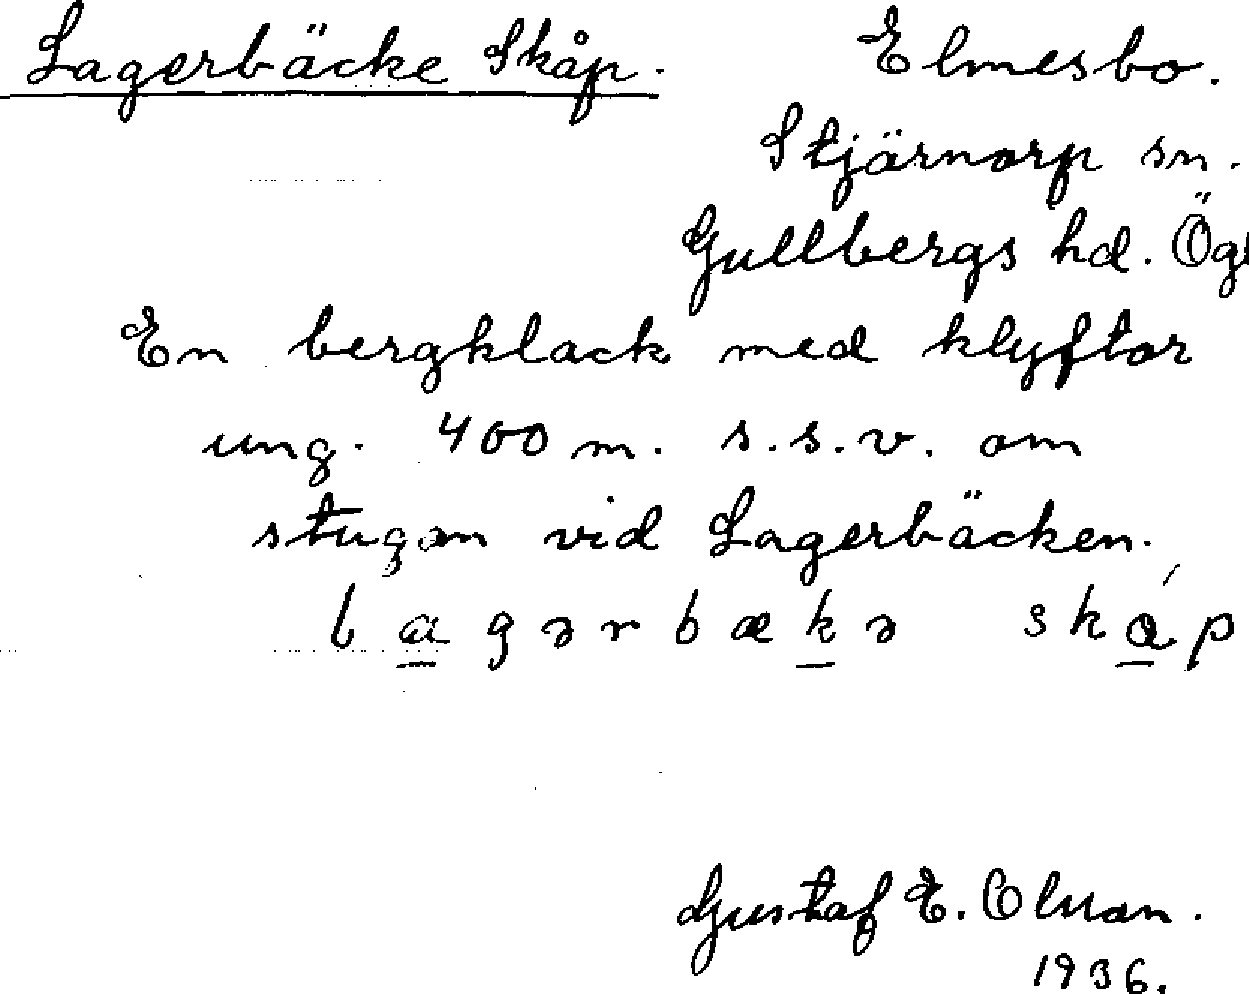 Lagerbäcke Skåp. Elmesbo.
Stjärnorp sn.
Gullbergs hd. Ög
En bergklack med klyftor
ung. 400 m. s.s.v. om
stugan vid Lagerbäcken.
lagərbækə skåp
Gustaf E.
1936.